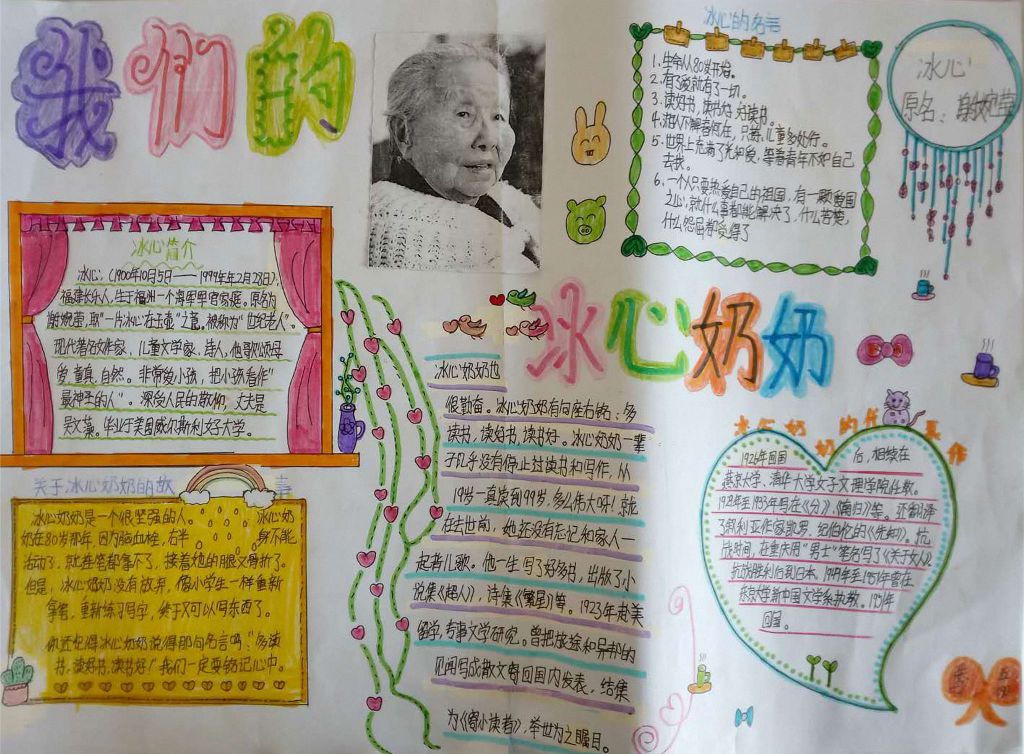 我们的
冰心奶奶
冰心简介
冰心，（1900年10月5日——1999年年2月28日），
福建长乐人，生于福州一个海军军官家庭。原名
谢婉莹，取“一片冰心在玉壶”之意。被称为“世纪老人”。
现代著名女作家、儿童文学家、诗人，他歌颂母
爱，童真，自然。非常爱小孩，把小孩看作“
最神圣的人”。深受人民的敬仰，丈夫是
吴文藻。毕业于美国威尔斯利女子大学。
关于冰心奶奶的故事
冰心奶奶是一个很坚强的人。冰心奶
奶在80岁那年，因为脑血栓，右半身不能
活动了，就连笔都拿不了，接着她的腿又骨折了。
但是，冰心奶奶没有放弃，像小学生一样重新
拿笔，重新练习写字，终于又可以写东西了。
你还记得冰心奶奶说得那句名言吗：“多读
书，读好书，读书好！我们一定要铭记心中。
冰心奶奶也
很勤奋。冰心奶奶有句座右铭：多
读书，读好书，读书好。冰心奶奶一辈
子几乎没有停止过读书和写作，从
19岁一直读到99岁，多么伟大呀！就
在去世前，她还没有忘记和家人一
起看儿歌。他一生写了好多书，出版了小
说集《超人》，诗集《繁星》等。1923年赴美
留学，专事文学研究。曾把旅途和异邦的
见闻写成散文寄回国内发表，结集
为《寄小读者》，举世为之瞩目。
冰心的名言
1.生命从80岁开始。
2.有了爱就有了一切。
3.读好书，读书好，好读书。
4.游人不解春何在，只拣儿童多处行。
5.世界上充满了光和爱，等着青年不和自己
去找。
6.一个人只要热爱自己的祖国，有一颗爱国
之心，就什么事都能解决了，什么苦楚，
什么怨屈都受得了
冰心
原名：谢婉莹
冰心奶奶的代表作
1926年回国后，相续在
燕京大学、清华大学女子文理学院任教。
1929年至1933年写在《分》、《南归》等。还翻译
了叙利亚作家凯罗·纪伯伦的《先知》。抗
战时间，在重庆用“男士”笔名写了《关于女人》，
抗战胜利后到日本，1949年至1951年曾在
东京大学新中国文学系执教。1951年
回国。